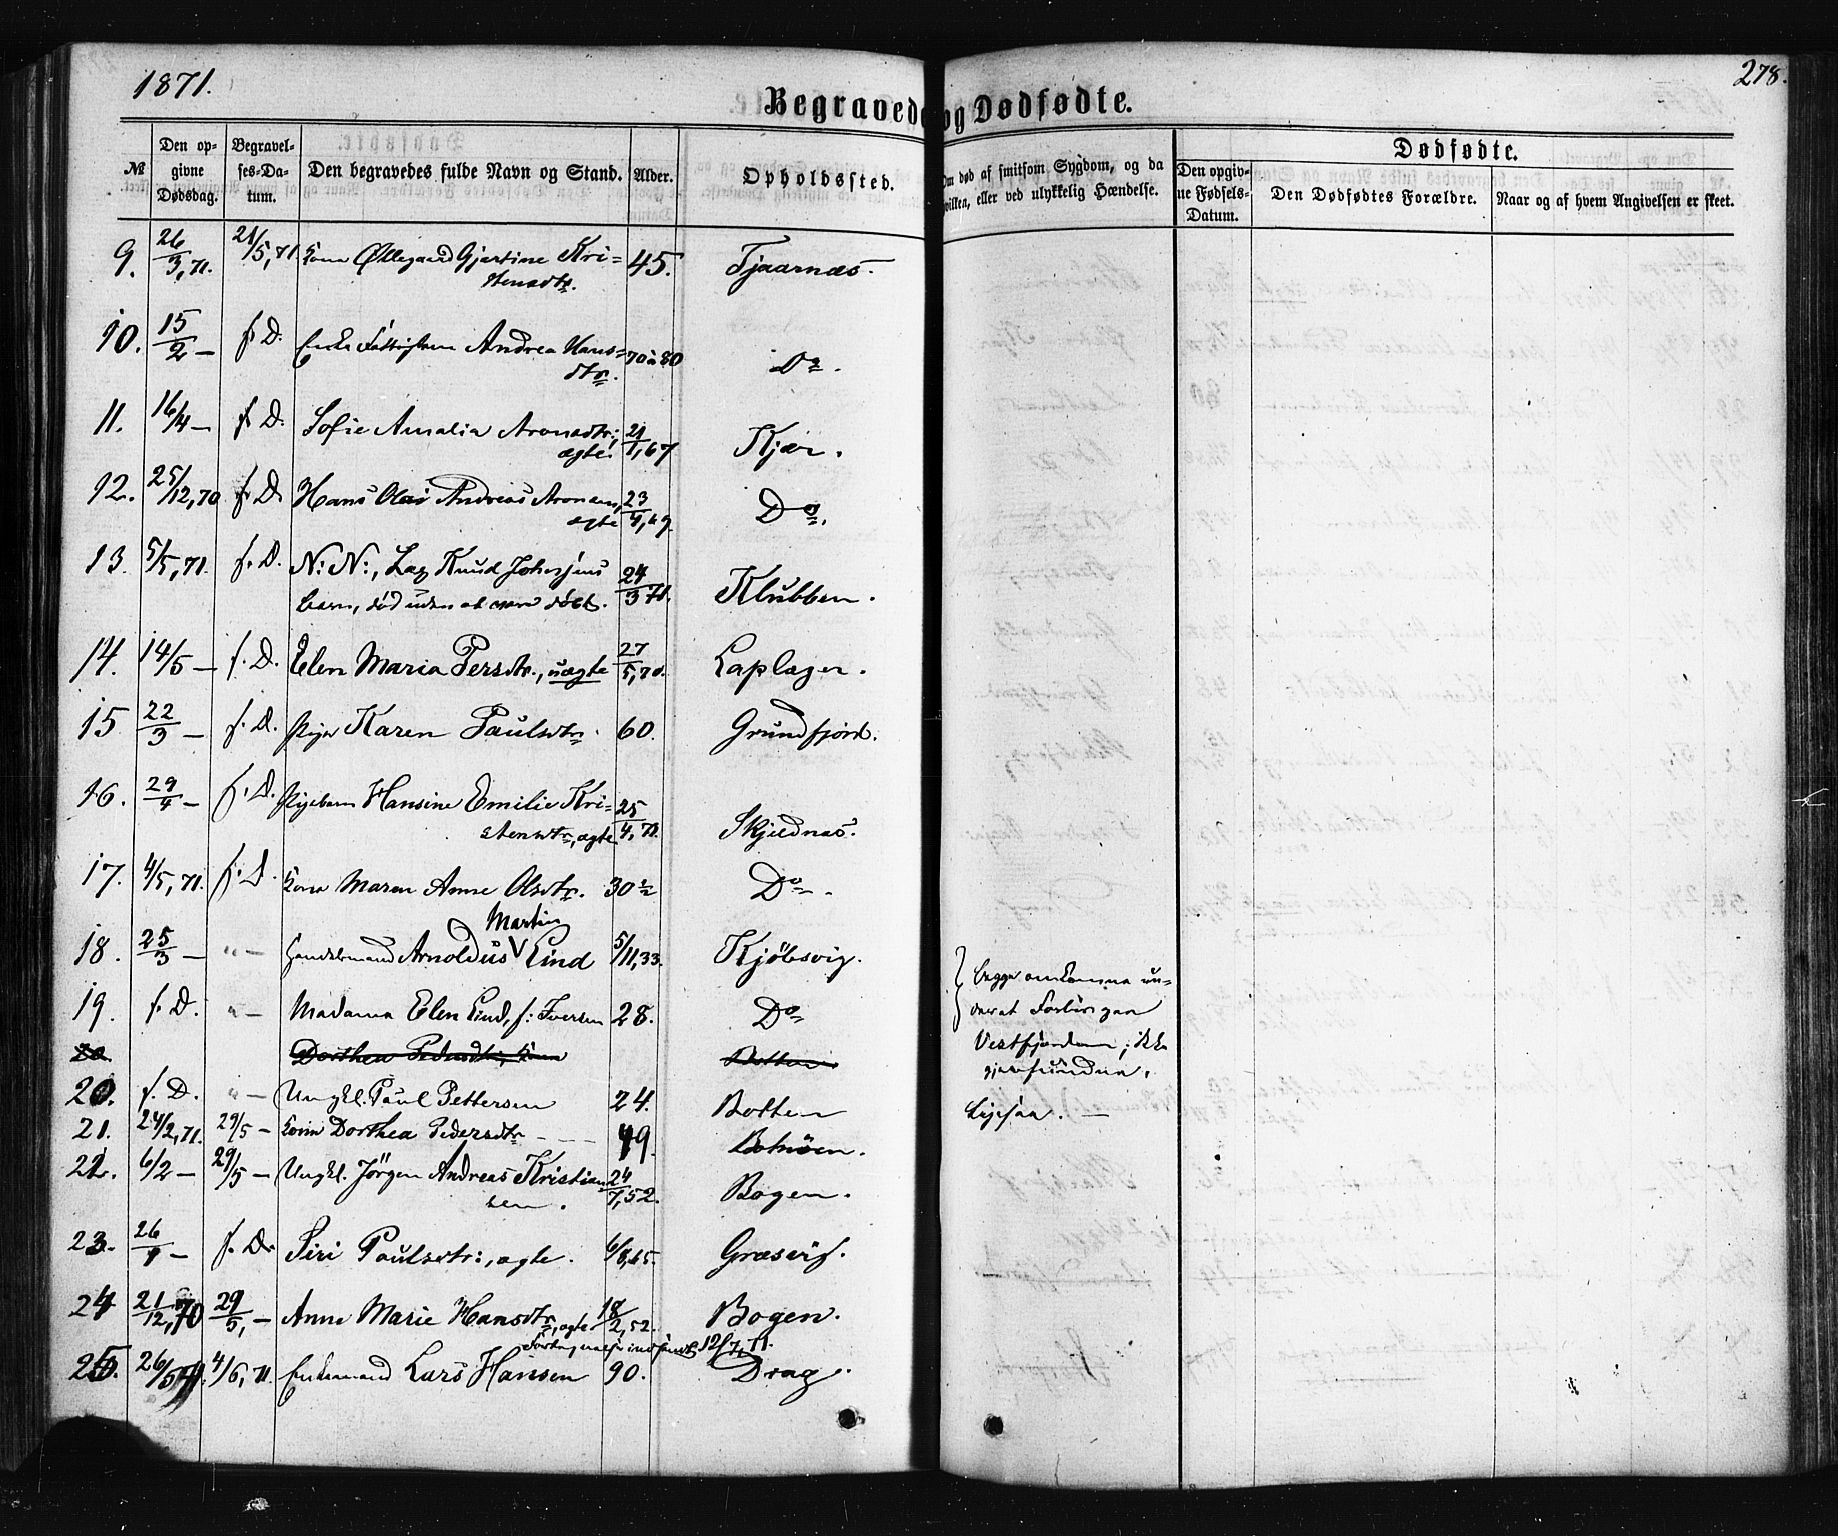 1871.
278.
Begravede og Dødfødte.
№
Den opgivne Dødsdag.
Begravelses-Datum.
Den begravedes fulde Navn og Stand.
Alder.
Opholdssted.
Om død af smitsom Sygdom, og da hvilken, eller ved ulykkelig Hændelse.
Dødfødte.
Den opgivne Fødsels-Datum.
Den Dødfødtes Forældre.
Naar og af hvem Angivelsen er skeet.
9. 26/3, 71. 21/5, 71. Kone Øllegaard Gjertine Kri=
stensdtr. 45. Tjaarnæs.
10. 15/2 — f. D. Enke Fattiglem Andrea Hans=
dtr. 70 à 80 Do.
11. 16/4 — f. D. Sofie Amalia Aronsdtr.,
ægte. 21/1, 67 Kjær.
12. 25/12, 70 f. D. Hans Olai Andreas Aronsen,
ægte 23/4, 69. Do.
13. 5/5, 71. f. D. N: N:, Lap Knud Johnsens
barn, død uden at være døbt. 24/3 71. Klubben.
14. 14/5 — f. D. Elen Maria Persdtr., uægte 27/5, 70. Laplæger.
15 22/3 — f. D. Pige Karen Paulsdtr. 60. Grundfjord.
16. 29/4 — f. D. Pigebarn Hansine Emilie Kri=
stensdtr, ægte 25/4, 71. Skjeldnæs.
17. 4/5, 71. f. D. Kone Maren Anne Olsdtr. 30 1/2 Do.
Martin
18. 25/3 — " — Handelsmand Arnoldus Lind 5/11, 33. Kjöbsvig.
19. f. D. " — Madama Elen Lind, f: Iversen 28. Do
begge omkomne un=
der at Forlis paa
Vestfjorden; ikke
gjenfundne.
20 Dorthea Pedersdtr, Kone Botten
20. f. D. " — Ungkl. Paul Pettersen 24. Botten
Ligesaa. —
21. 24/2, 71. 29/5 — Kone Dorthea Pedersdtr 49. Botnöen.
22. 6/2 — 29/5 — Ungkl. Jörgen Andreas Kristian
sen. 24/7, 52. Bogen.
23. 26/1 — f. D. Siri Paulsdtr:, ægte. 6/8, 65. Græsvig.
24 21/12, 70 29/5, — Anne Marie Hansdtr, ægte 18/2, 52. Bogen.
12/7, 71.
25. 26/5 71. 4/6, 71. Enkemand Lars Hansen 90. Drag.